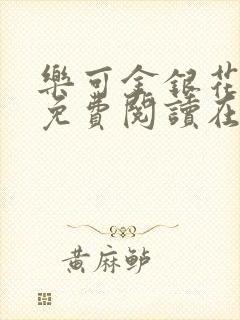 樂可金銀花
免費閱讀在
黃麻鲈